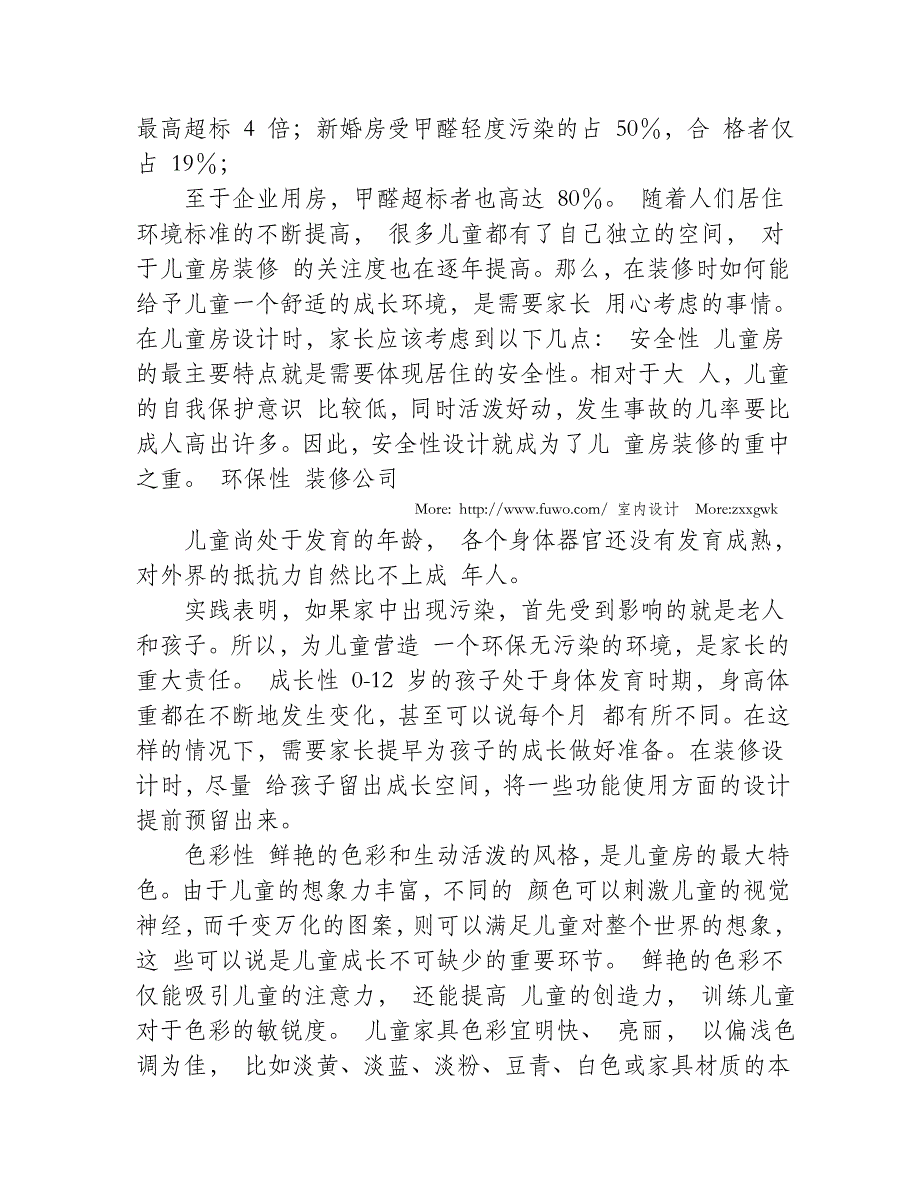 最高超标 4 倍；新婚房受甲醛轻度污染的占 50％，合 格者仅
占 19％；
至于企业用房，甲醛超标者也高达 80％。 随着人们居住
环境标准的不断提高， 很多儿童都有了自己独立的空间， 对
于儿童房装修 的关注度也在逐年提高。那么，在装修时如何能
给予儿童一个舒适的成长环境，是需要家长 用心考虑的事情。
在儿童房设计时，家长应该考虑到以下几点： 安全性 儿童房
的最主要特点就是需要体现居住的安全性。相对于大 人，儿童
的自我保护意识 比较低，同时活泼好动，发生事故的几率要比
成人高出许多。因此，安全性设计就成为了儿 童房装修的重中
之重。 环保性 装修公司
More: http://www.fuwo.com/ 室内设计 More:zxxgwk
儿童尚处于发育的年龄， 各个身体器官还没有发育成熟，
对外界的抵抗力自然比不上成 年人。
实践表明，如果家中出现污染，首先受到影响的就是老人
和孩子。所以，为儿童营造 一个环保无污染的环境，是家长的
重大责任。 成长性 0-12 岁的孩子处于身体发育时期，身高体
重都在不断地发生变化，甚至可以说每个月 都有所不同。在这
样的情况下，需要家长提早为孩子的成长做好准备。在装修设
计时，尽量 给孩子留出成长空间，将一些功能使用方面的设计
提前预留出来。
色彩性 鲜艳的色彩和生动活泼的风格，是儿童房的最大特
色。由于儿童的想象力丰富，不同的 颜色可以刺激儿童的视觉
神经，而千变万化的图案，则可以满足儿童对整个世界的想象，
这 些可以说是儿童成长不可缺少的重要环节。 鲜艳的色彩不
仅能吸引儿童的注意力， 还能提高 儿童的创造力， 训练儿童
对于色彩的敏锐度。 儿童家具色彩宜明快、 亮丽， 以偏浅色
调为佳， 比如淡黄、淡蓝、淡粉、豆青、白色或家具材质的本